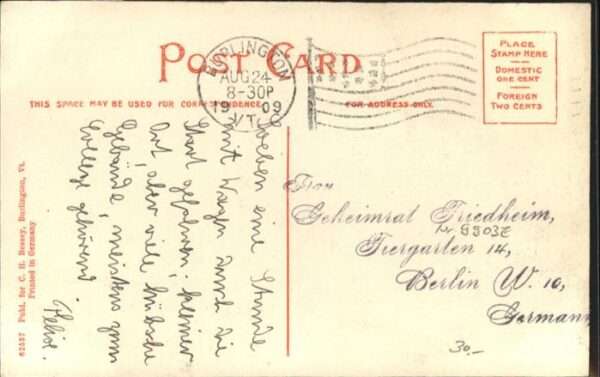 POST CARD
BURLINGTON
AUG 24
8-30P
1909
VT.
PLACE
STAMP HERE
DOMESTIC
ONE CENT
FOREIGN
TWO CENTS
THIS SPACE MAY BE USED FOR CORRESPONDENCE
FOR ADDRESS ONLY.
Soeben eine Stunde
mit Wagen durch die
Stadt gefahren. kleiner
Ort, aber viele hübsche
Gebäude, meistens zum
College gehörend.
Felix.
Frau
Geheimrat Friedheim,
Nr 9903E
Tiergarten 14,
Berlin W. 10,
Germany
30.-
62537 Publ. for C. H. Bessey, Burlington, Vt.
Printed in Germany